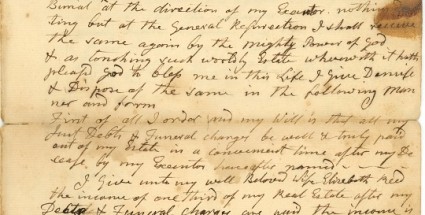 Burial at the direction of my Executor. nothing dou
ting but at the General Resurrection I shall receive
the same again by the mighty Power of God
& as touching such worldly Estate wherewith it hath
pleasd God to bless me in this Life I Give Demise
& Dispose of the same in the following Man
ner and form
First of all I order and my Will is that all my
Just Debts & Funeral charges be well & truly paid
out of my Estate in a convenient time after my De
cease by my Executor hereafter named
I Give unto my well Beloved Wife Elizabeth Reed
the income of one third of my Real Estate after my
Debts & Funeral Charges are paid the income is